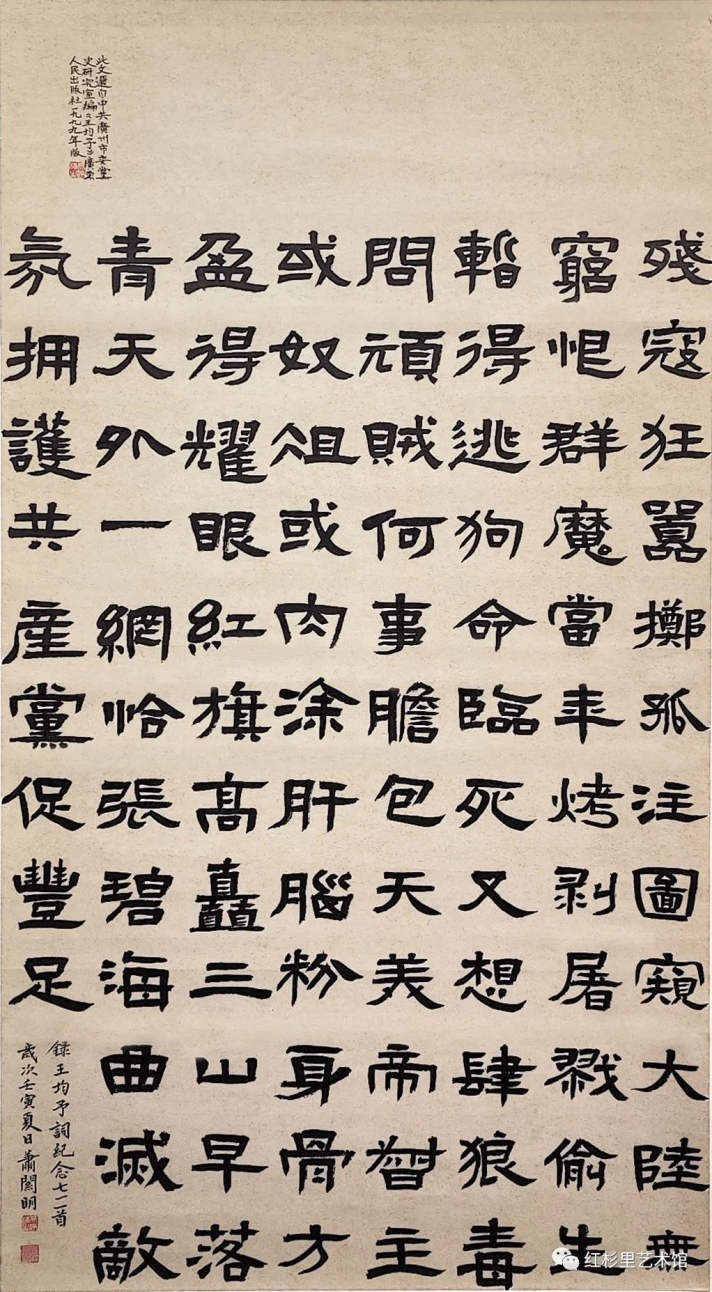 此文選自中共廣州市委黨
史研究室編之王均予廣東
人民出版社一九九九年版
殘寇狂囂擲孤注圖窺大陸無
窮恨群魔當年烤剥屠戮偷生
暫得逃狗命臨死又想肆狼毒
問頑賊何事膽包天美帝督主
或奴俎或肉涂肝腦粉身骨方
盈得耀眼紅旗高矗三山早落
青天外一網恰張碧海曲滅敵
氛拥護共產黨促豐足
録王均予詞紀念七一二首
歲次壬寅夏日蕭明
红杉里艺术馆